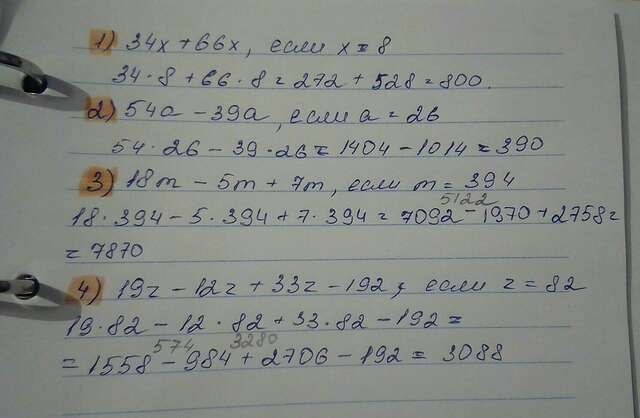 1) 34x+66x, если x=8
34·8+66·8=272+528=800.
2) 54a-39a, если a=26
54·26-39·26=1404-1014=390
3) 18m-5m+7m, если m=394
5122
18·394-5·394+7·394=7092-1970+2758=
=7870
4) 19z-12z+33z-192, если z=82
19·82-12·82+33·82-192=
574 3280
=1558-984+2706-192=3088